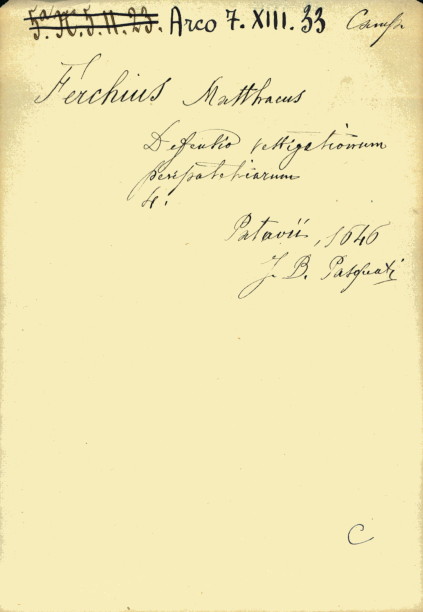 5.H.5.II.23. Arco 7. XIII. 33
Ferchius Matthaeus
Defentio vestigationum
peripateticarum
4.
Patavii, 1646
J. B. Pasquati
C